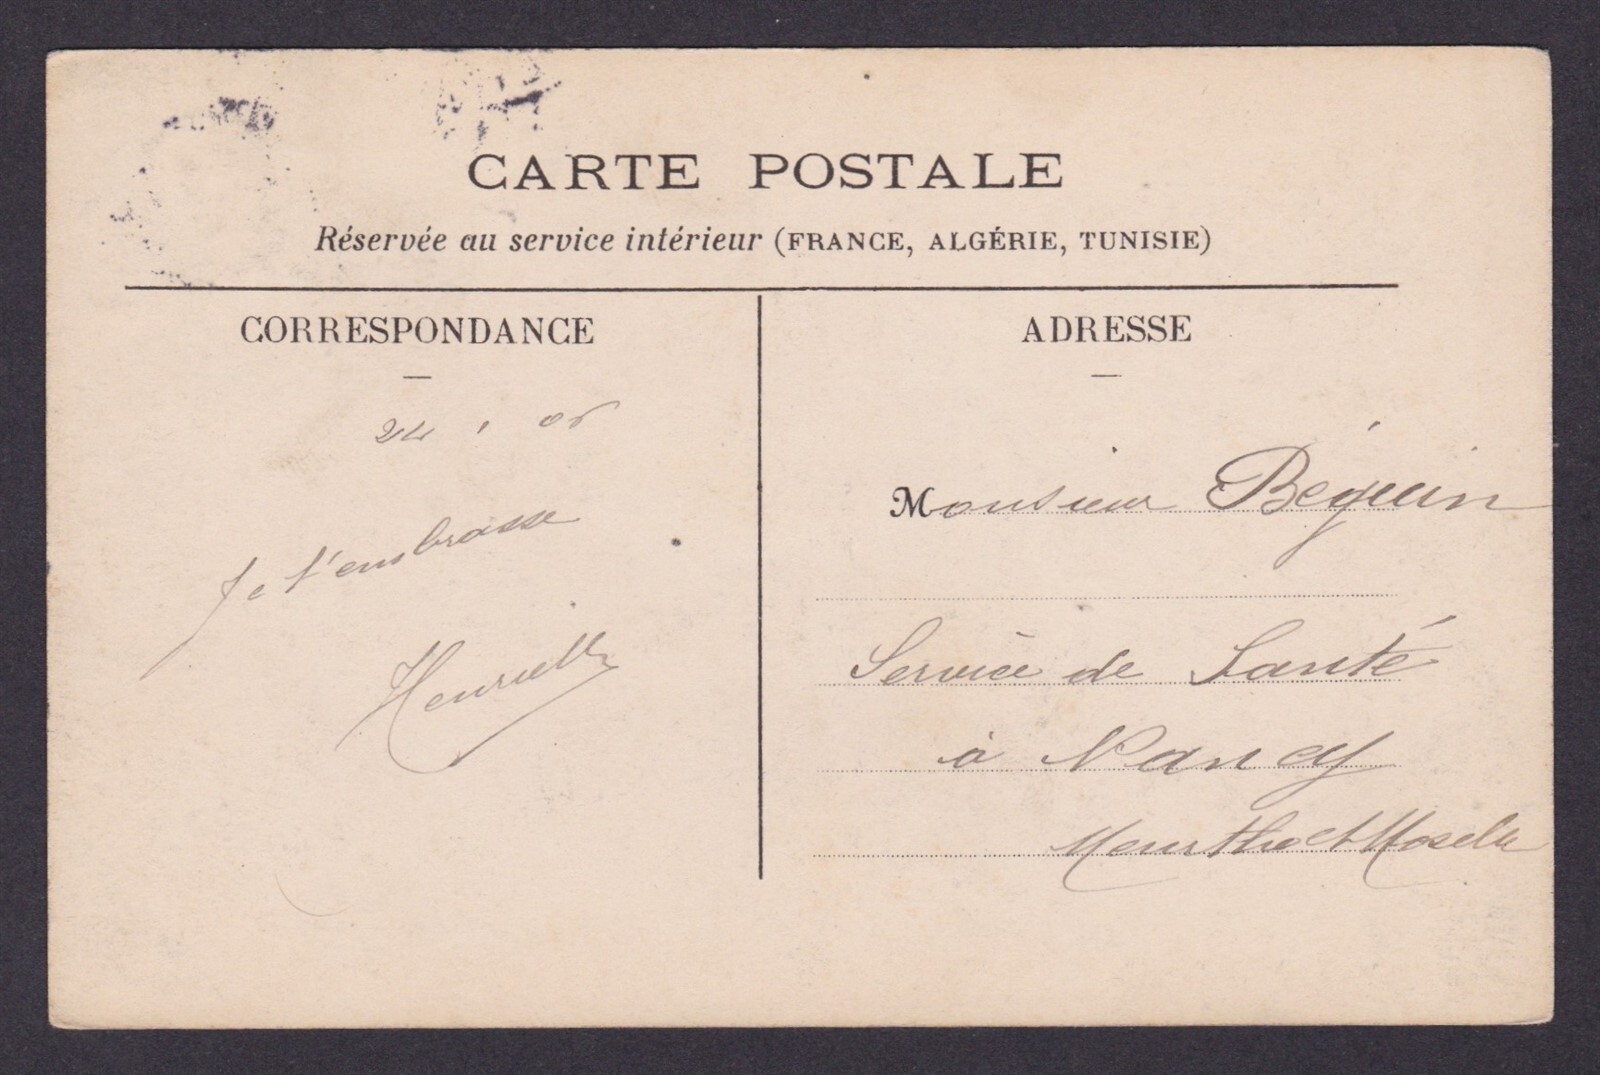 CARTE POSTALE
Réservée au service intérieur (FRANCE, ALGÉRIE, TUNISIE)
CORRESPONDANCE
24, 05
Je t'embrasse
Henriette
ADRESSE
Monsieur Béguin
Service de Santé
à Nancy
Meurthe et Moselle